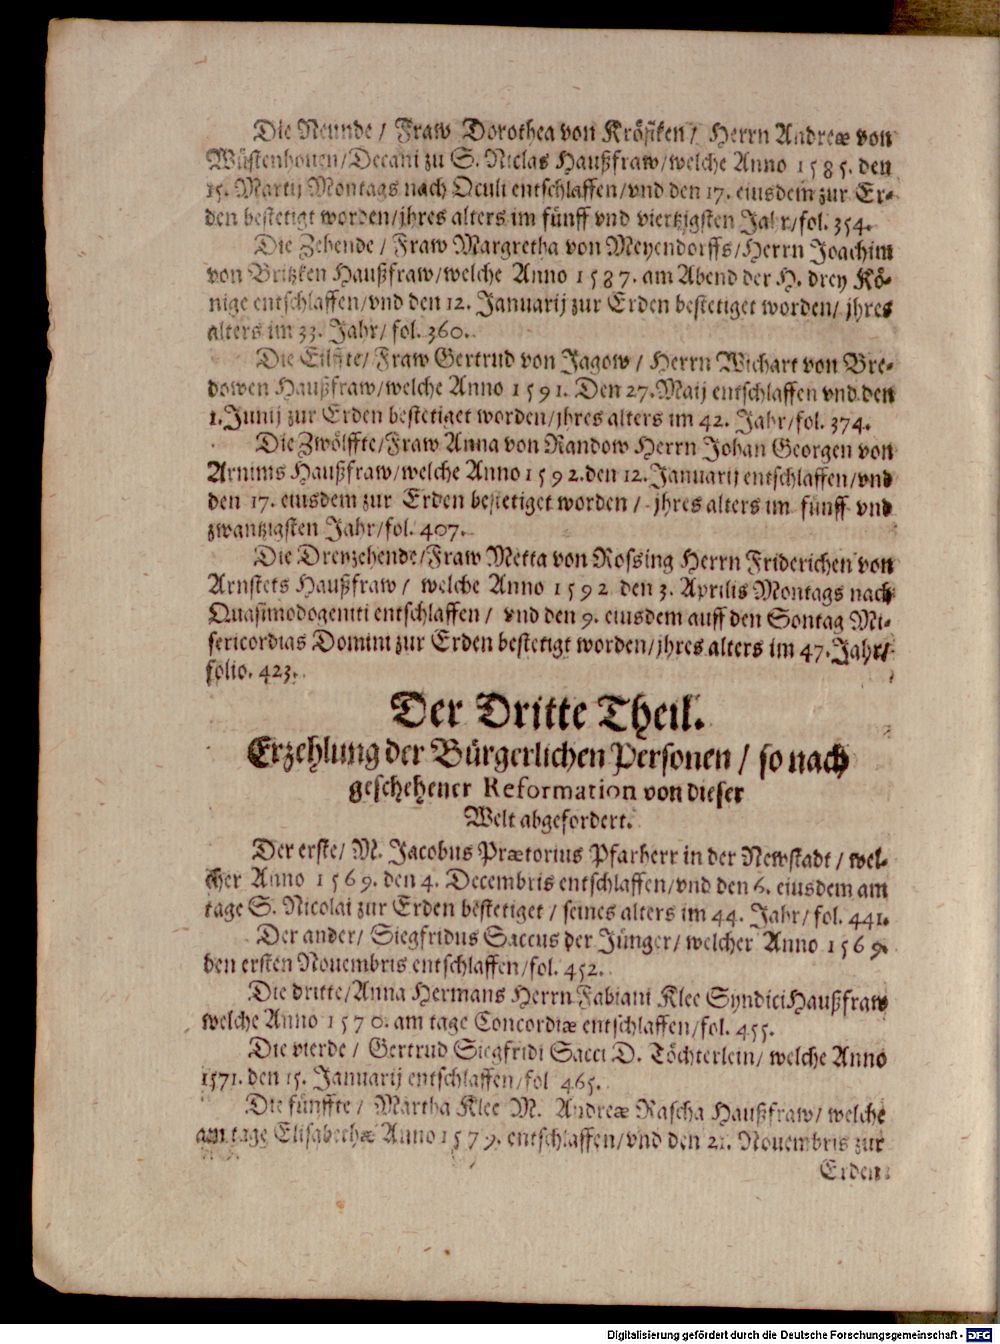 Die Neunde / Fraw Dorothea von Krösiken / Herrn Andreæ von
Wüstenhouen/Decani zu S. Niclas Haußfraw/welche Anno 1585. den
15. Martij Montags nach Oculi entschlaffen/vnd den 17. eiusdem zur Er-
den bestetigt worden/jhres alters im fünff vnd viertzigsten Jahr/fol. 354.
Die Zehende / Fraw Margretha von Meyendorffs/Herrn Joachim
von Britzken Haußfraw/welche Anno 1587. am Abend der H. drey Kö-
nige entschlaffen/vnd den 12. Januarij zur Erden bestetiget worden/ jhres
alters im 33. Jahr/ fol. 360.
Die Eilffte/ Fraw Gertrud von Jagow / Herrn Wichart von Bre-
dowen Haußfraw/welche Anno 1591. Den 27. Maij entschlaffen vnd den
1. Junij zur Erden bestetiget worden/jhres alters im 42. Jahr/fol. 374.
Die Zwölffte/Fraw Anna von Randow Herrn Johan Georgen von
Arnims Haußfraw/welche Anno 1592. den 12. Januarij entschlaffen/vnd
den 17. eiusdem zur Erden bestetiget worden / jhres alters im fünff vnd
zwantzigsten Jahr/fol. 407.
Die Dreyzehende/Fraw Metta von Rossing Herrn Friderichen von
Arnstets Haußfraw / welche Anno 1592 den 3. Aprilis Montags nach
Quasimodogeniti entschlaffen / vnd den 9. eiusdem auff den Sontag Mi-
sericordias Domini zur Erden bestetigt worden/jhres alters im 47. Jahr/
folio. 423.
Der Dritte Theil.
Erzehlung der Bürgerlichen Personen / so nach
geschehener Reformation von dieser
Welt abgefordert.
Der erste/ M. Jacobus Prætorius Pfarherr in der Newstadt / wel-
cher Anno 1569. den 4. Decembris entschlaffen/vnd den 6. eiusdem am
tage S. Nicolai zur Erden bestetiget / seines alters im 44. Jahr/ fol. 441.
Der ander/ Siegfridus Saccus der Jünger/ welcher Anno 1569.
den ersten Nouembris entschlaffen/fol. 452.
Die dritte/Anna Hermans Herrn Fabiani Klee Syndici Haußfraw
welche Anno 1570. am tage Concordiæ entschlaffen/fol. 455.
Die vierde / Gertrud Siegfridi Sacci D. Töchterlein/ welche Anno
1571. den 15. Januarij entschlaffen/fol 465.
Die fünffte / Martha Klee M. Andreæ Rascha Haußfraw/ welche
am tage Elisabethæ Anno 1579. entschlaffen/vnd den 21. Nouembris zur
Erden
Digitalisierung gefördert durch die Deutsche Forschungsgemeinschaft - DFG